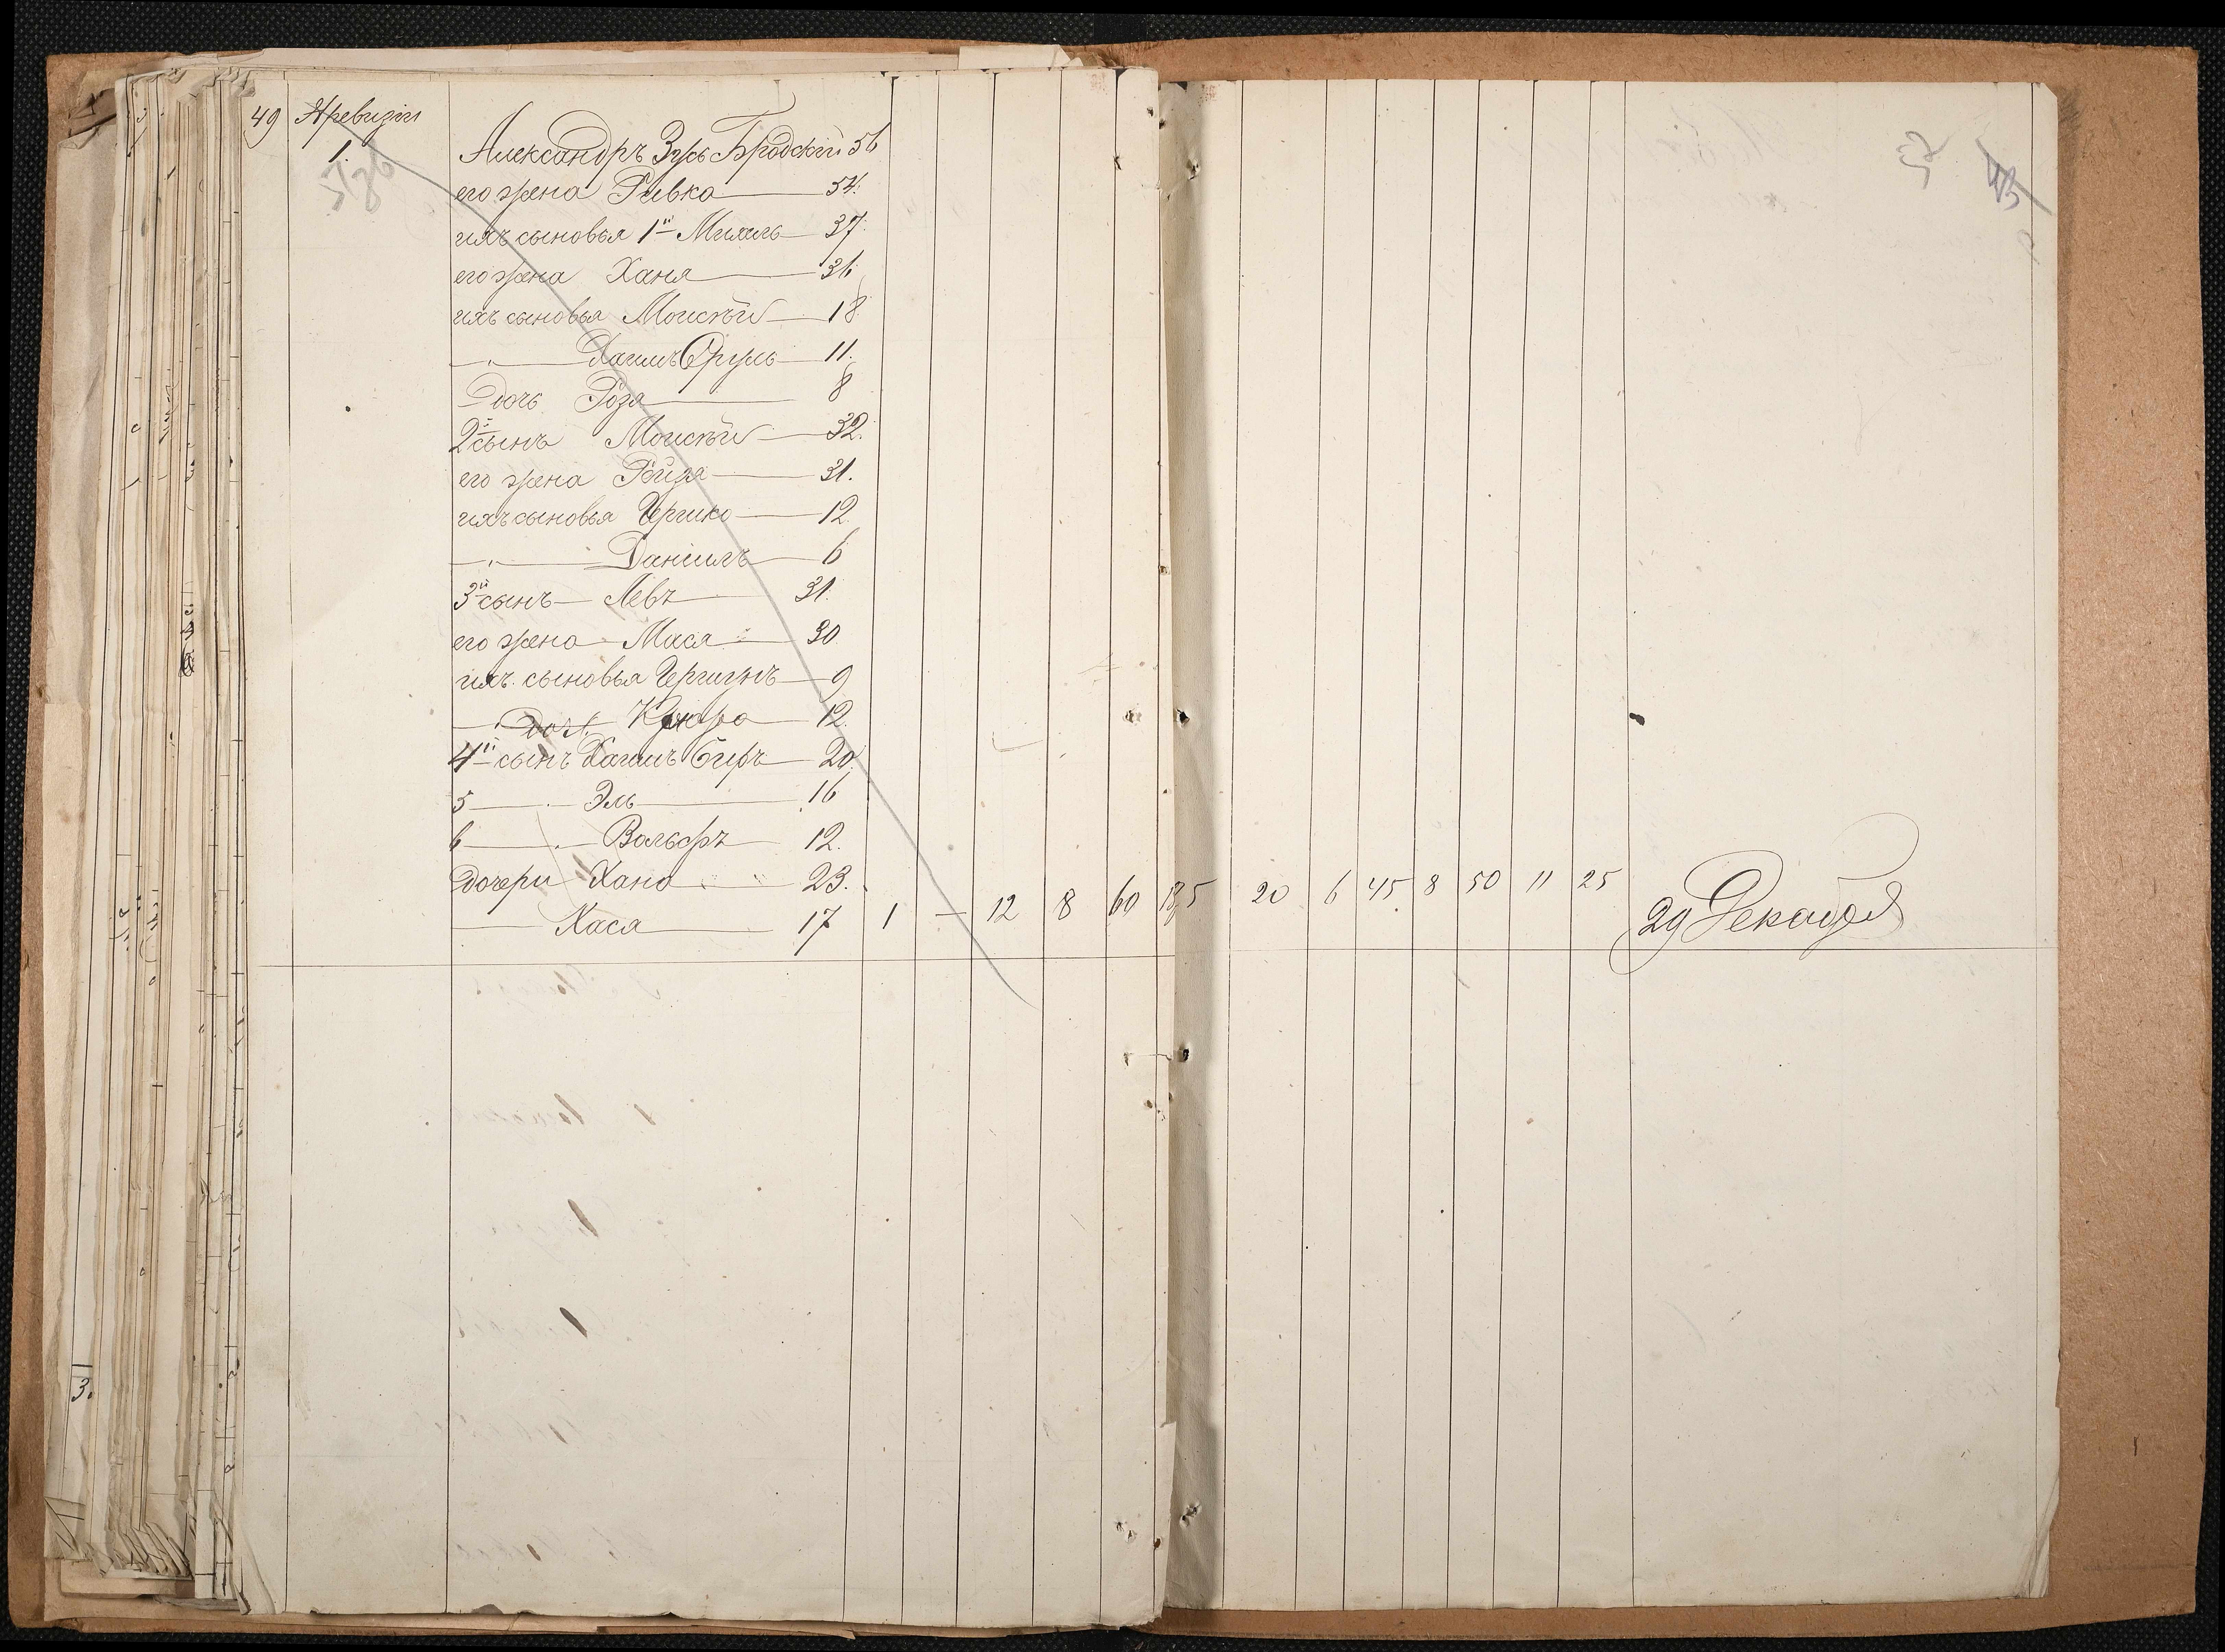 49 Яревизіи
1.
Александръ Зусь Бродскій 56
его жена Ривка 54.
ихъ сыновья 1й Михель 37.
его жена Ханя 36
ихъ сыновья Моисѣй 18
" Хаимъ Сруль 11.
Дочь Роза 8
2й сынъ Моисѣй 32.
его жена Рейзя 31.
ихъ сыновья Гершко 12
" Даніилъ 6
3й сынъ Левъ 31.
его жена Мася 30
ихъ сыновья Гершунъ 9
доч. 12.
4й сынъ Хаимъ Беръ 20
5 Эль 16
6 Вольфъ 12.
Дочери Хана 23.
Хася 17 1 — 12 8 60 18,5 20 6 45 8 50 11 25 29 Декабря